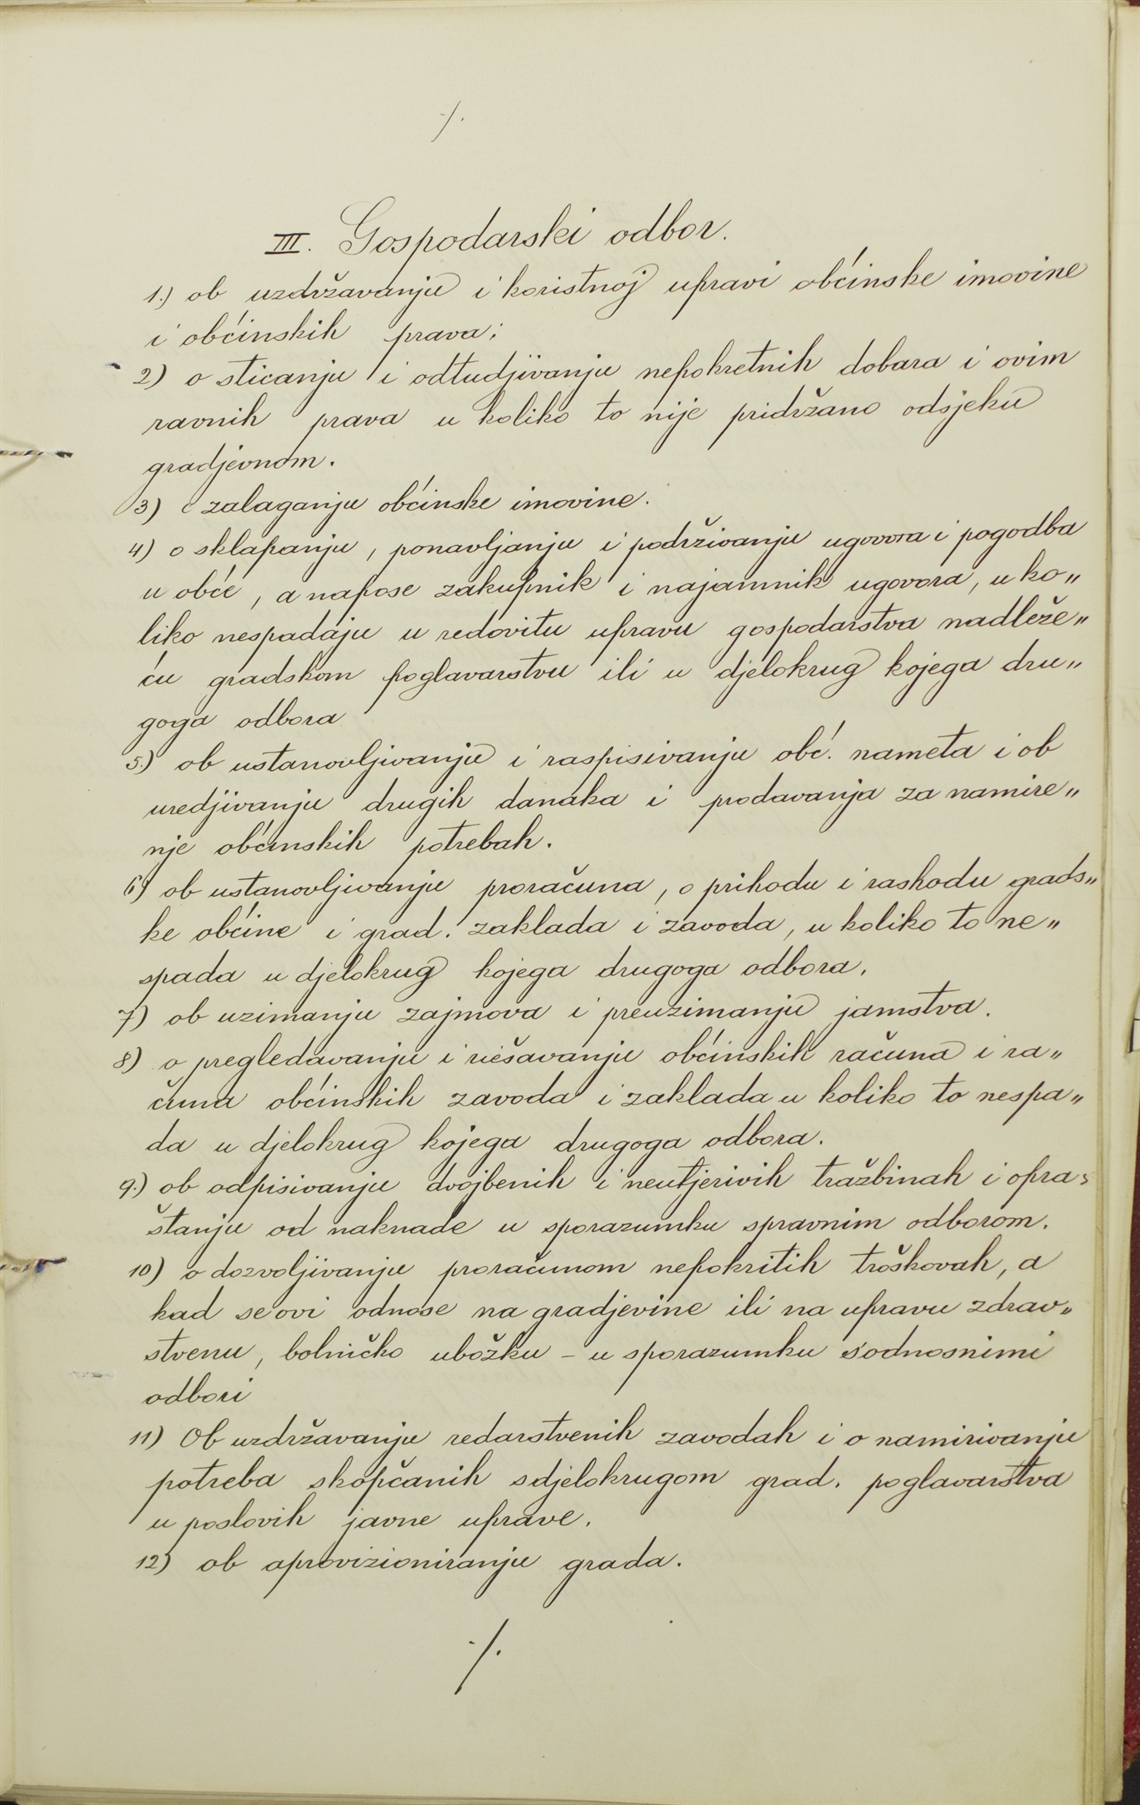 ·/.
III. Gospodarski odbor.
1.) ob uzdržavanju i koristnoj upravi obćinske imovine
i obćinskih prava;
2) o sticanju i odtudjivanju nepokretnih dobara i ovim
ravnih prava u koliko to nije pridržano odsjeku
gradjevnom.
3) o zalaganju obćinske imovine.
4) o sklapanju, ponavljanju i podrživanju ugovora i pogodba
u obće, a napose zakupnik i najamnik ugovora, u ko„
liko nespadaju u redovitu upravu gospodarstva nadleže„
ću gradskom poglavarstvu ili u djelokrug kojega dru„
goga odbora
5.) ob ustanovljivanju i raspisivanju obć. nameta i ob
uredjivanju drugih danaka i podavanja za namire„
nje obćinskih potrebah.
6) ob ustanovljivanju proračuna, o prihodu i rashodu grads„
ke obćine i grad. zaklada i zavoda, u koliko to ne„
spada u djelokrug kojega drugoga odbora.
7) ob uzimanju zajmova i preuzimanju jamstva.
8) o pregledavanju i riešavanju obćinskih računa i ra„
čuna obćinskih zavoda i zaklada u koliko to nespa„
da u djelokrug kojega drugoga odbora.
9.) ob odpisivanju dvojbenih i neutjerivih tražbinah i opra„
štanju od naknade u sporazumku spravnim odborom.
10) o dozvoljivanju proračunom nepokritih troškovah, a
kad se ovi odnose na gradjevine ili na upravu zdrav„
stvenu, bolničko ubožku – u sporazumku s'odnosnimi
odbori
11) Ob uzdržavanju redarstvenih zavodah i o namirivanju
potreba skopčanih sdjelokrugom grad. poglavarstva
u poslovih javne uprave.
12) ob aprovizioniranju grada.
·/.